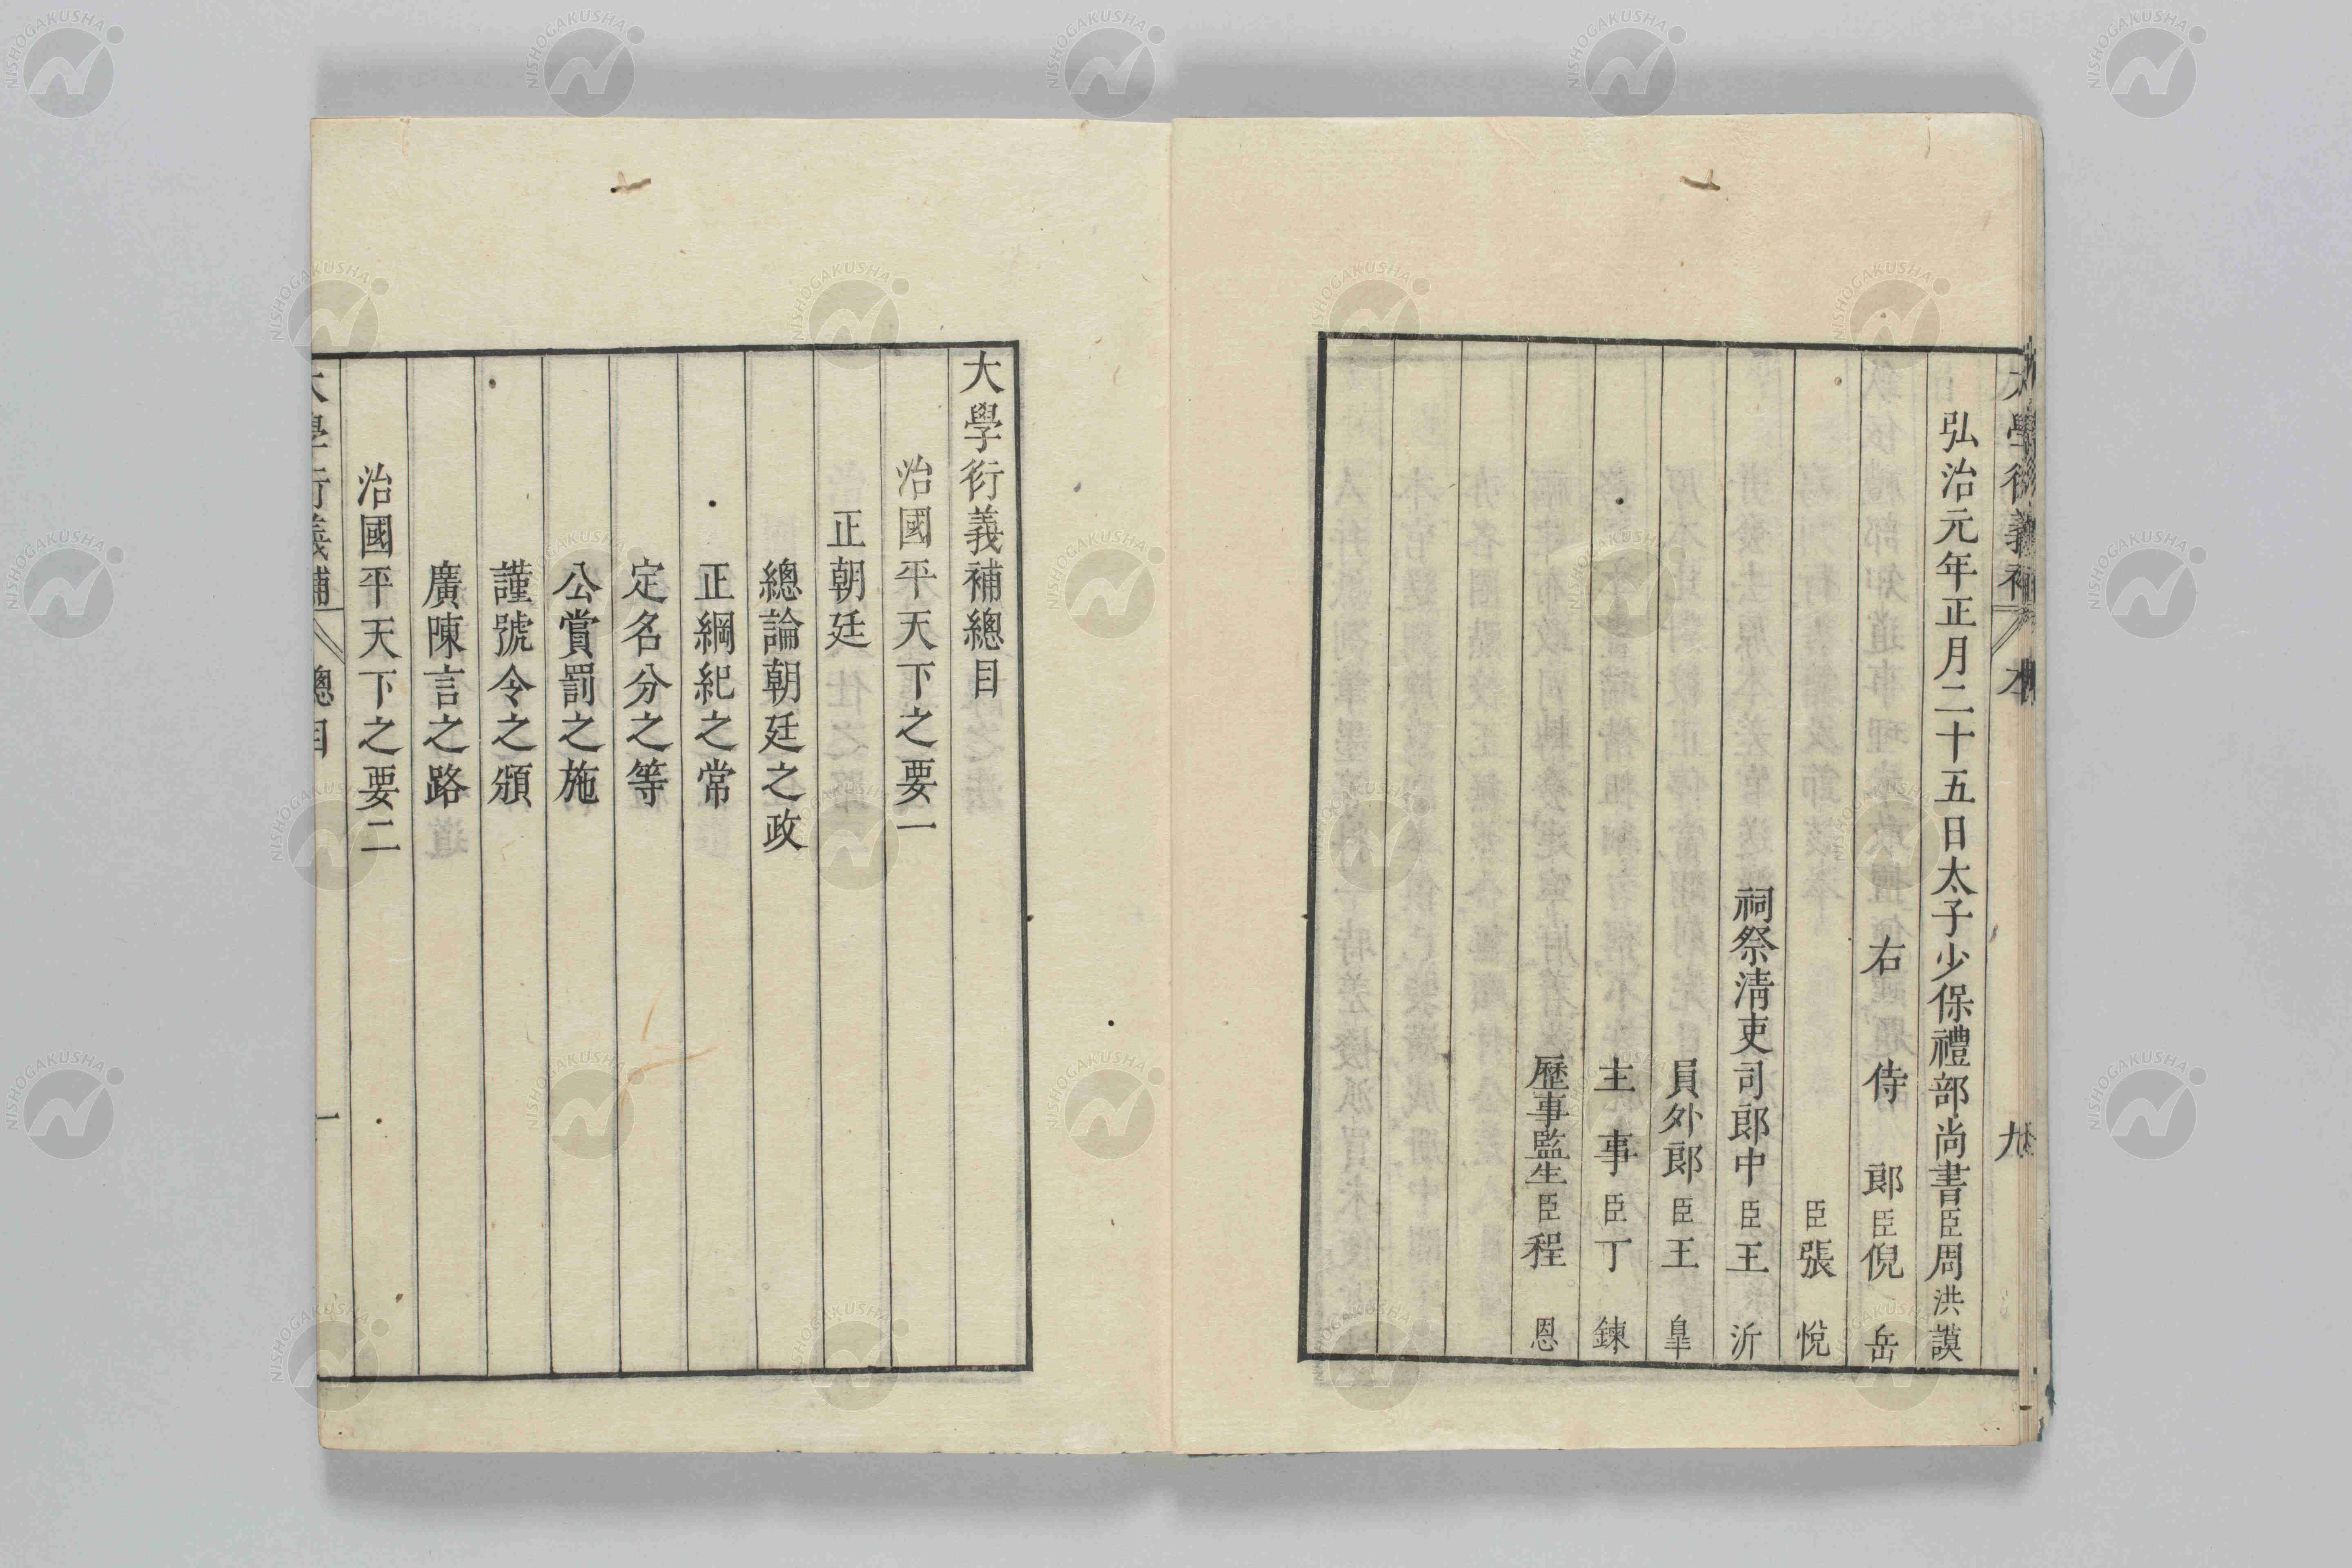 弘治元年正月二十五日太子少保禮部尚書臣周洪謨
右侍郎臣倪岳
臣張悅
祠祭淸吏司郎中臣王沂
員外郎臣王皐
主事臣丁鍊
歷事監生臣程恩
大學衍義補總目
治國平天下之要一
正朝廷
總論朝廷之政
正綱紀之常
定名分之等
公賞罰之施
謹號令之頒
廣陳言之路
治國平天下之要二
大學衍義補 總目 一
NISHOGAKUSHA